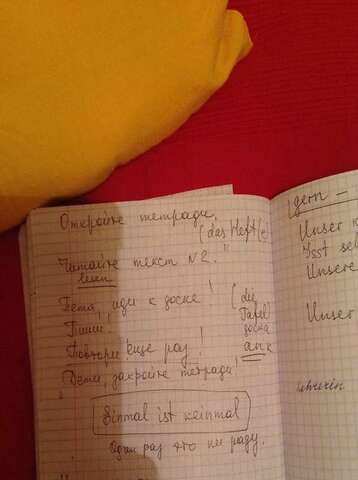 Откройте тетради.
(das Heft(e)
Читайте текст №2."
lesen
Петя, иди к доске! (die
Пиши! Tafel
доска
Повтори еще раз! an
Дети, закройте тетради!
"
Einmal ist keinmal
Один раз что ни разу.
gern –
Unser
Isst
Unsere
Unser